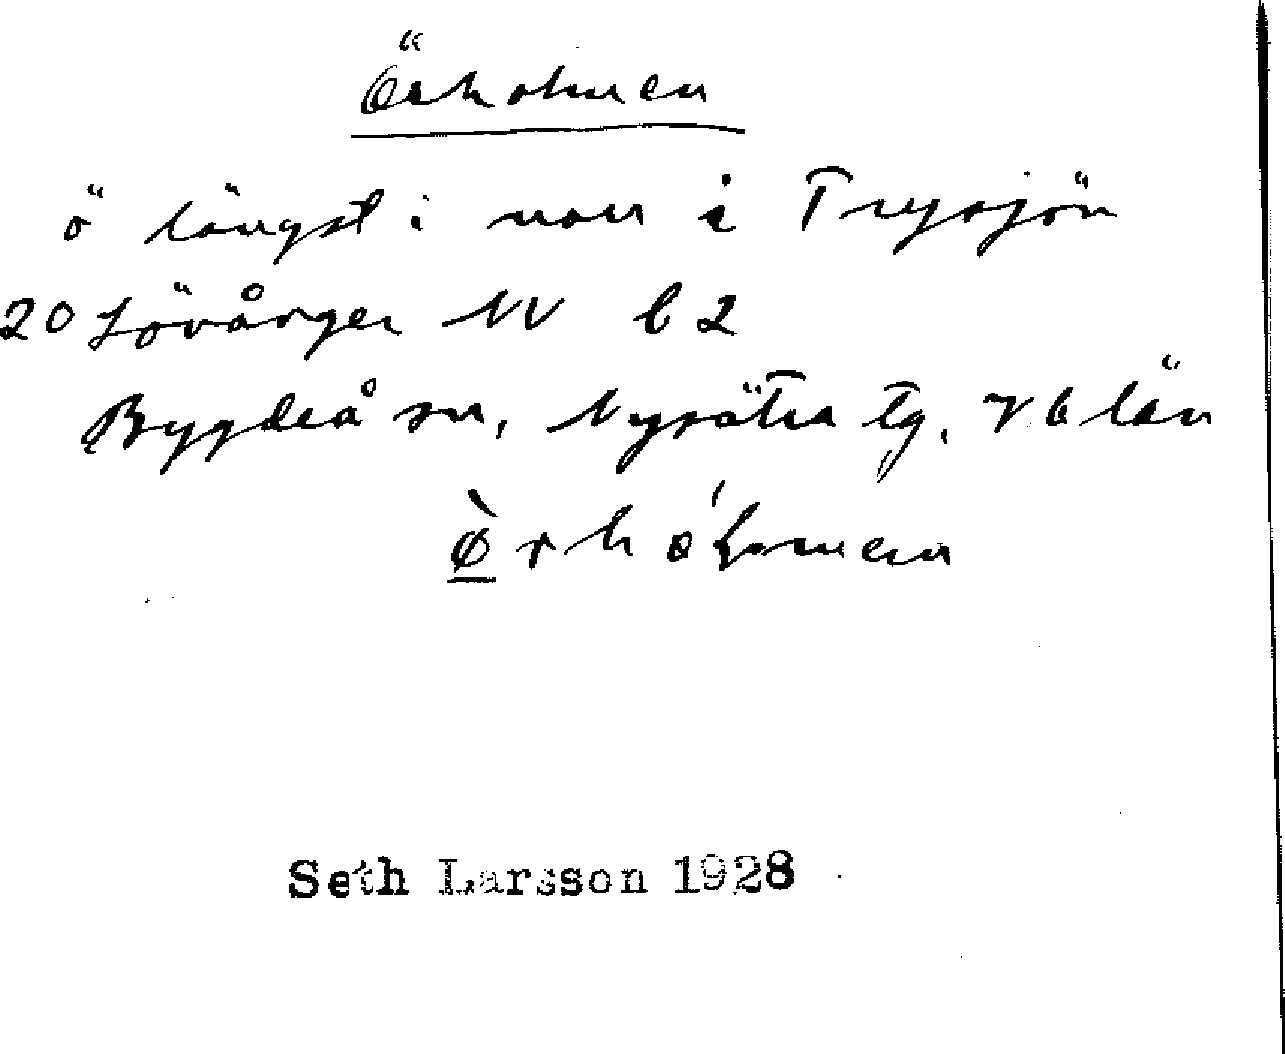 Örholmen
ö längst i norr i Trysjön
20 Lövånger NV b 2
Bygdeå sn, Nysätra tg. Vb län
Seth Larsson 1928